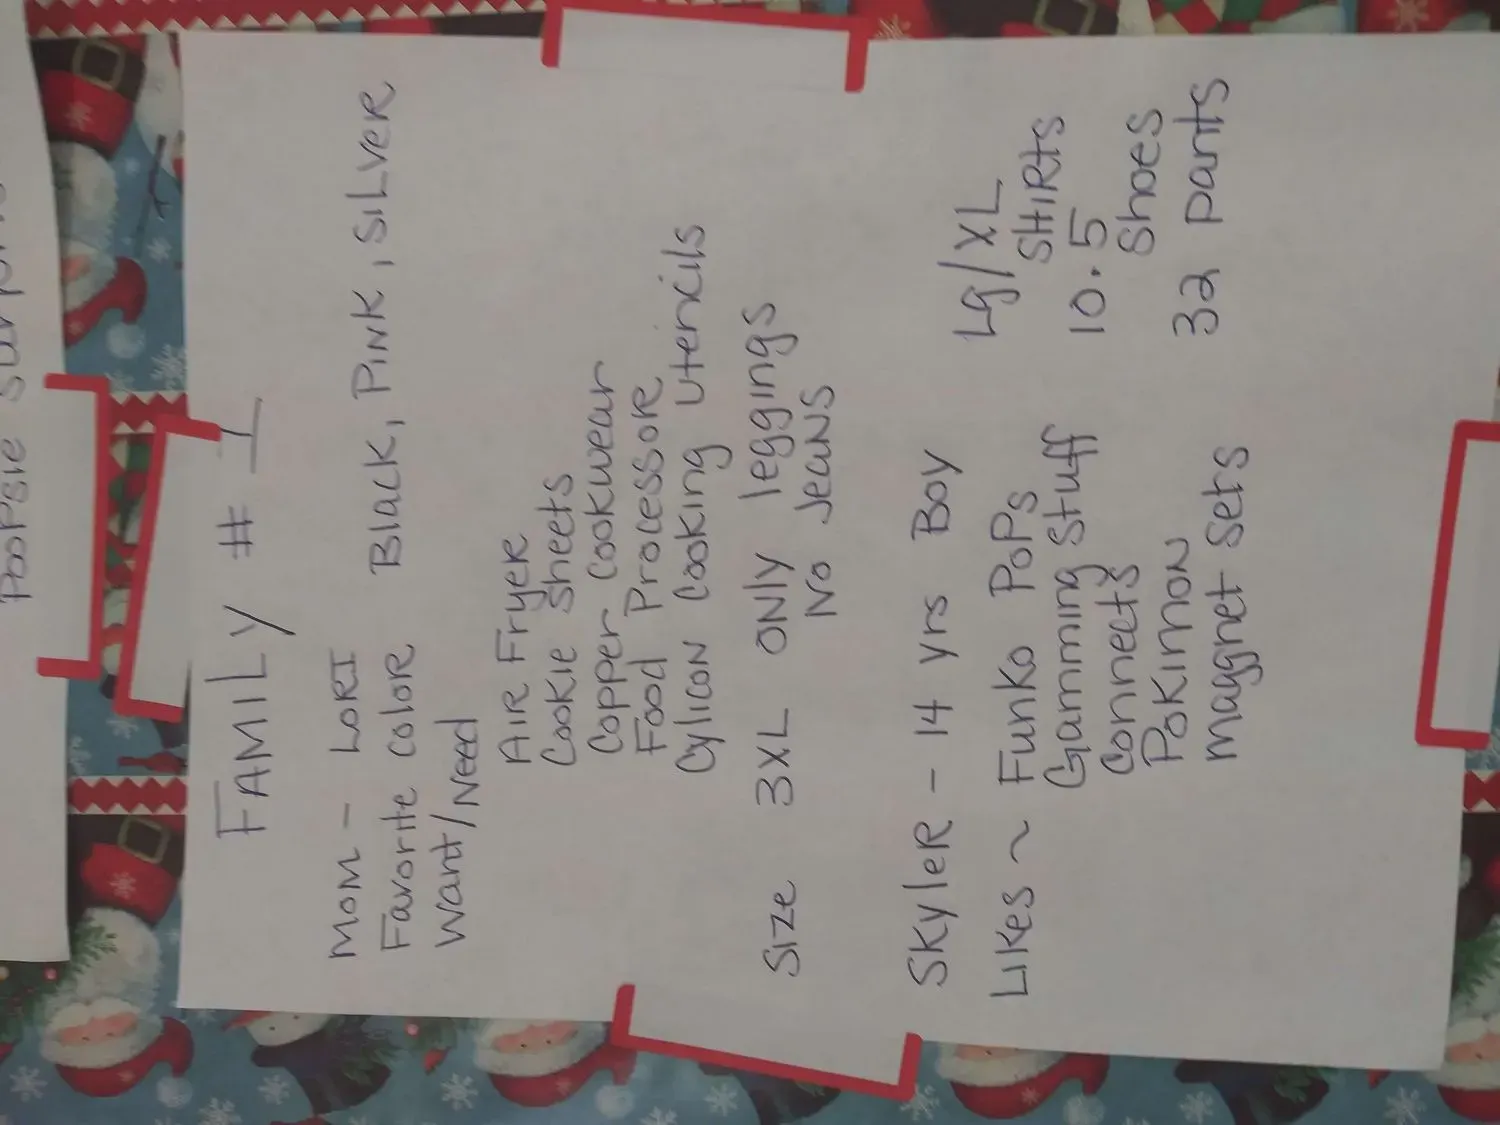 Poopsie
FAMILY # 1
Mom - LORI
Favorite color Black, Pink, silver
Want/Need
AIR Fryer
Cookie sheets
Copper cookwear
Food Processore
Cylicon cooking utencils
Size 3XL ONLY leggings
No Jeans
SkyleR - 14 yrs Boy
Likes ~ Funko PoPs
Gamming stuff
Connects
Pokimon
magnet sets
Lg/XL
SHIRts
10.5
Shoes
32 pants